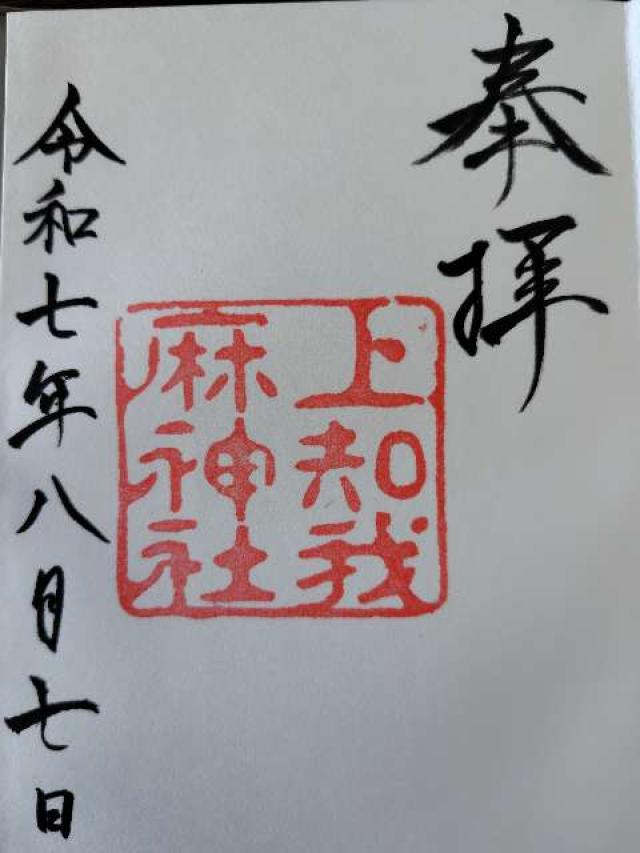 奉拝
上知我
麻神社
令和七年八月七日